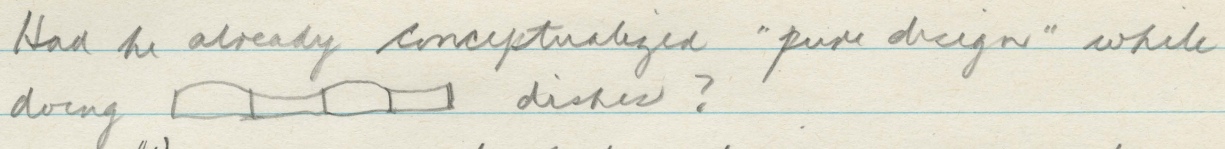 Had he already conceptualized "pure design" while
doing dishes?